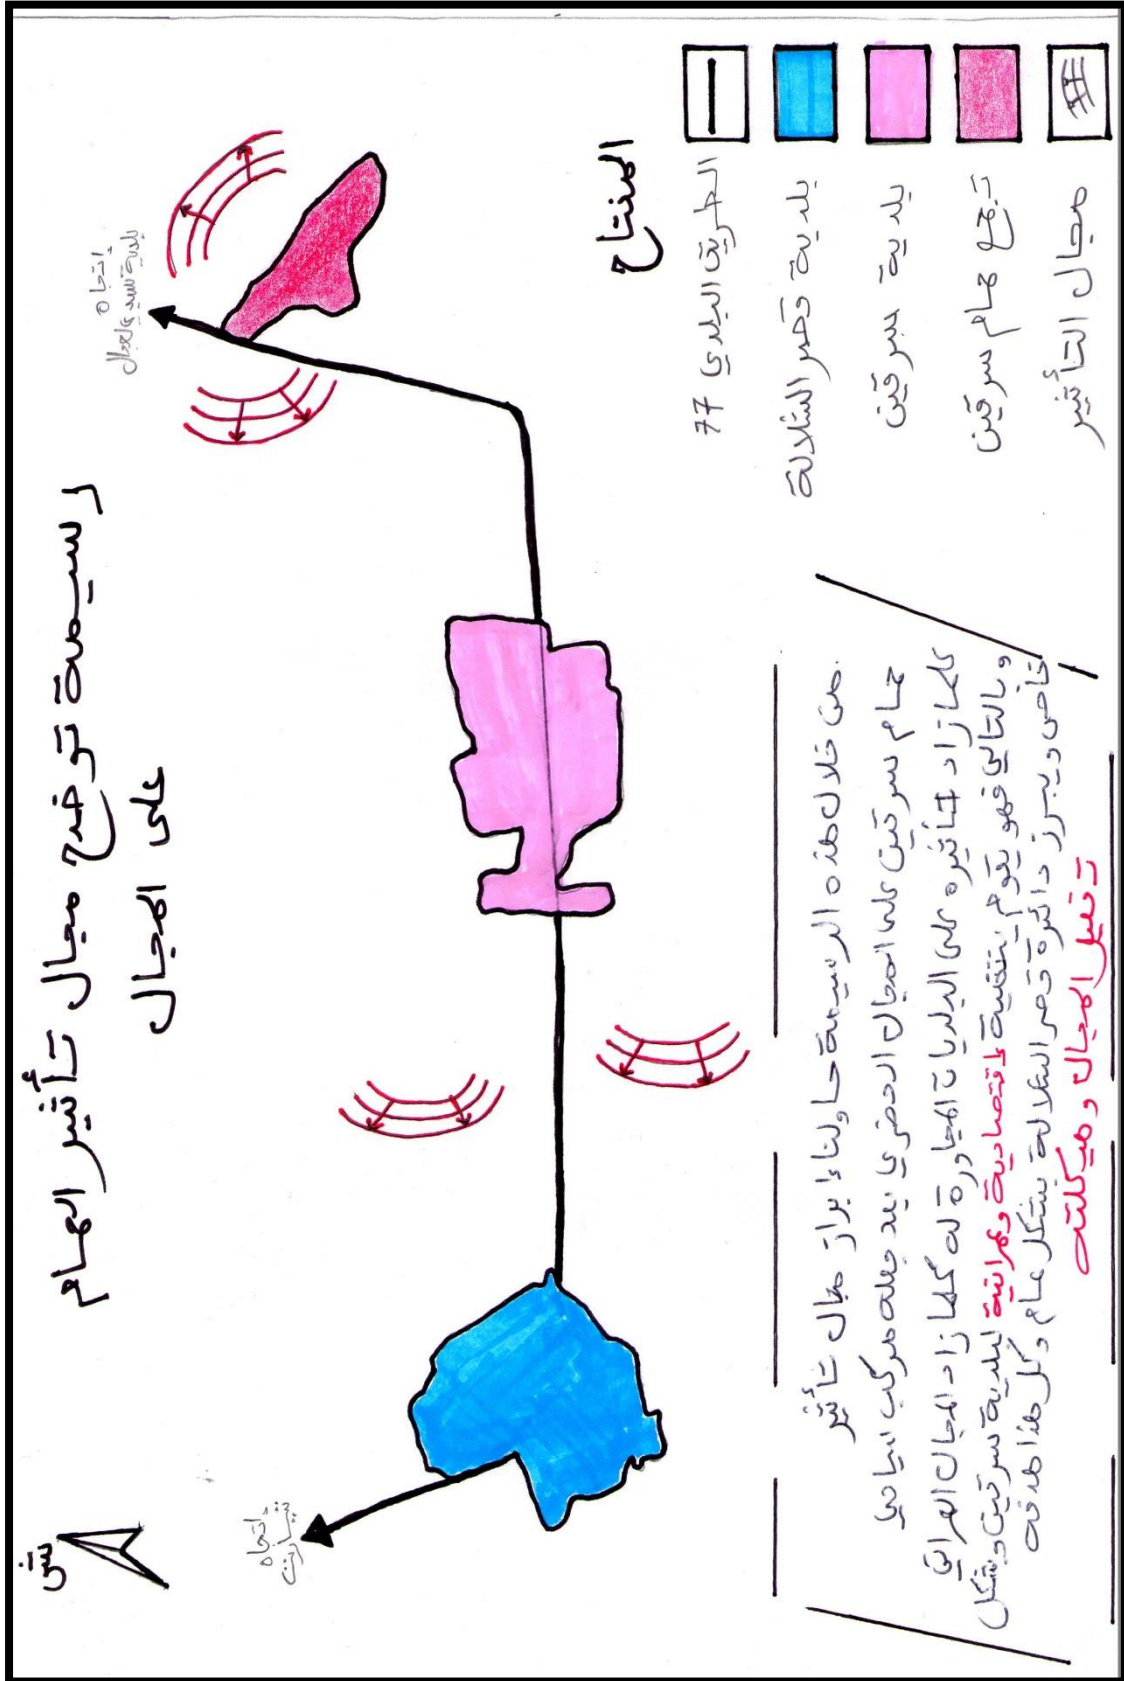 رسيمة توضح مجال تأثير الحمام
على المجال
ش
إتجاه
تيارت
إتجاه
بلدية سيدي لعجال
المفتاح
الطريق البلدي 77
بلدية قصر الشلالة
بلدية سرقين
تجمع حمام سرقين
مجال التأثير
من خلال هذه الرسيمة حاولنا إبراز مجال تأثير
حمام سرقين على المجال الحضري بعد جعله مركب سياحي
كلما زاد تأثيره على البلديات المجاورة له كلما زاد المجال العمراني
وبالتالي فهو يقوم بتنمية إقتصادية وعمرانية لبلدية سرقين وبشكل
خاص ويبرز دائرة قصر الشلالة بشكل عام وكل هذا هدفه
تفعيل المجال وهيكلته